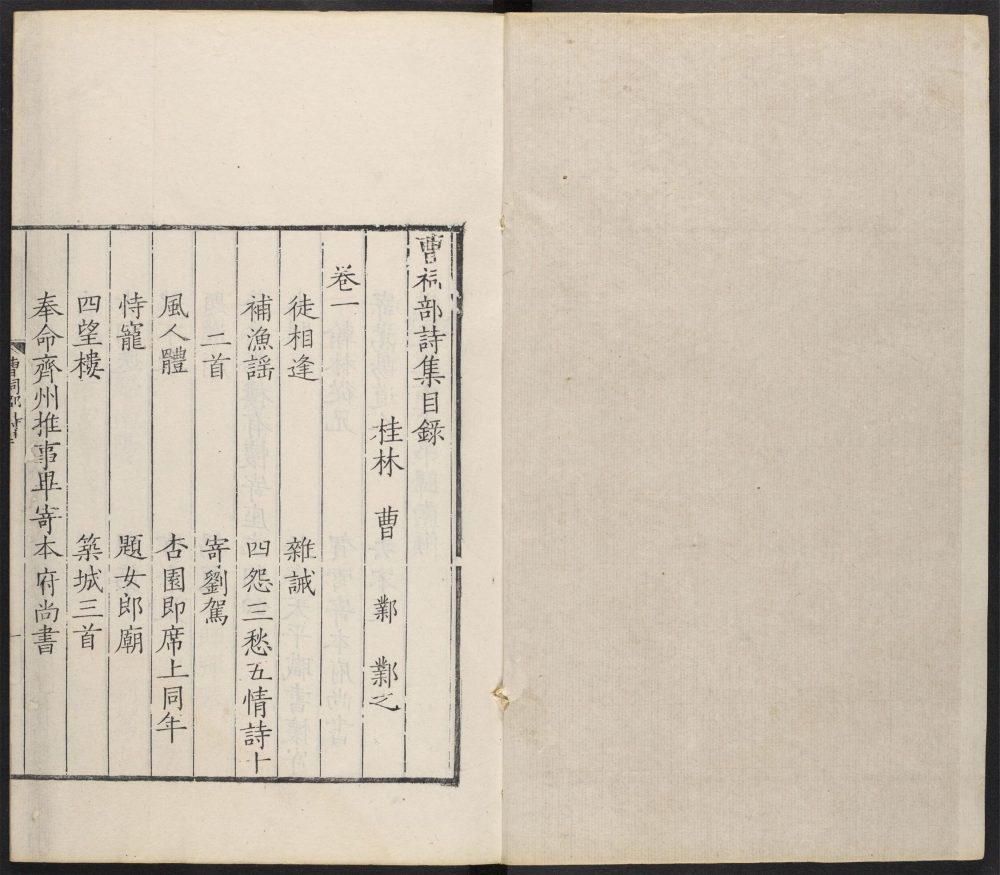 曹祠部詩集目錄
桂林 曹 鄴 鄴之
卷一
徒相逢 雜誡
補漁謡 四怨三愁五情詩十
二首 寄劉駕
風人體 杏園即席上同年
恃寵 題女郎廟
四望樓 築城三首
奉命齊州推事畢寄本府尚書
曹祠部
一